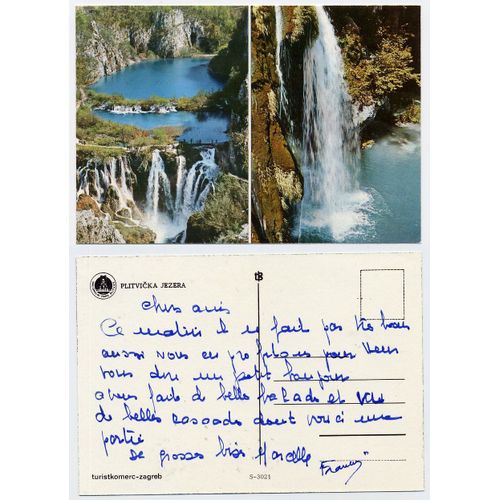 PLITVIČKA JEZERA
tB
chers amis
Ce matin il ne fait pas très beau
aussi nous en profitons pour venir
vous dire un petit bonjour
avons fait de belles balades et vu
de belles cascades dont voici une
partie
de grosses bises Marcelle
Francis
turistkomerc-zagreb
S-3021